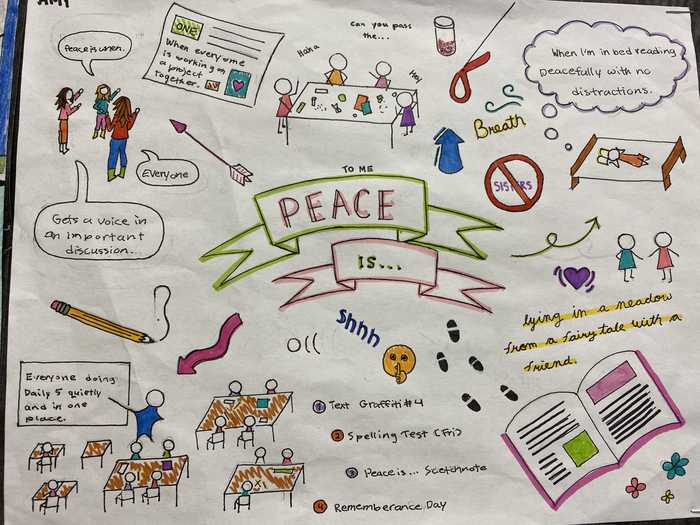 AMY
Peace is when.
Everyone
Gets a voice in
an important
discussion...
ONE
When everyone
is working on
a project
together.
can you pass
the...
Haha
Hey!
Breath
SISTERS
When I'm in bed reading
peacefully with no
distractions.
TO ME
PEACE
IS...
Shhh
lying in a meadow
from a fairytale with a
friend.
Everyone doing
Daily 5 quietly
and in one
place.
1 Text Graffiti #4
2 Spelling Test (Fri)
3 Peace is... Sketchnote
4 Rememberance Day